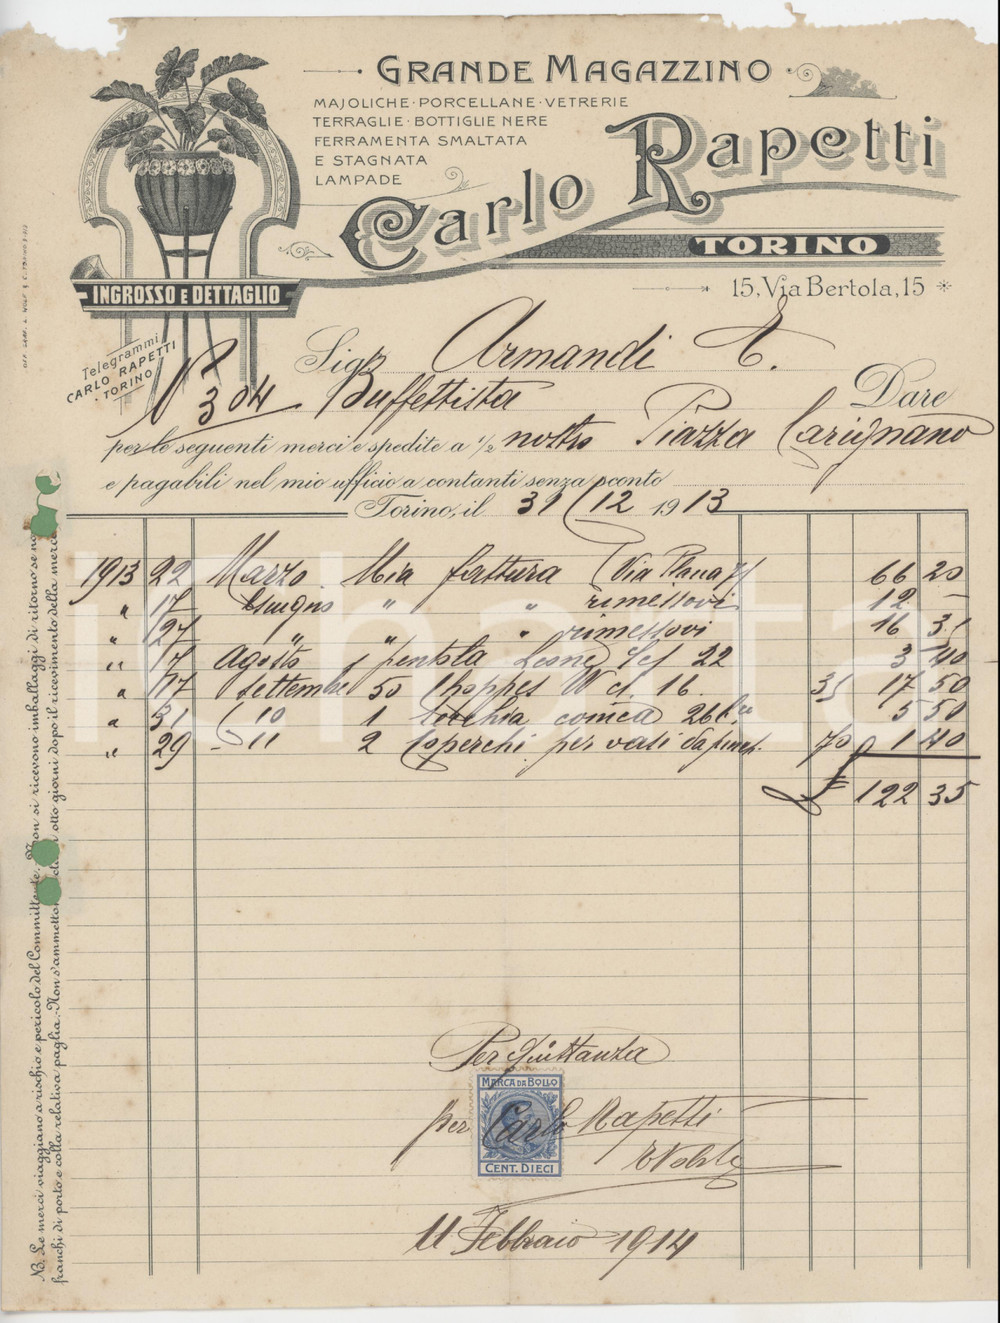 GRANDE MAGAZZINO
MAJOLICHE · PORCELLANE · VETRERIE
TERRAGLIE · BOTTIGLIE NERE
FERRAMENTA SMALTATA
E STAGNATA
LAMPADE
Carlo Rapetti
TORINO
15, Via Bertola, 15
INGROSSO E DETTAGLIO
Telegrammi
CARLO RAPETTI
TORINO
Sig. Armandi E.
N 304 Buffettista Dare
per le seguenti merci e spedite a ½ nostro Piazza Carignano
e pagabili nel mio ufficio a contanti senza sconto
Torino, il 31/12 1913
1913 22 Marzo Mia fattura (Via Plana 7) 66 20
" 17 Giugno " " rimessovi 12 -
" 27 " " " rimessovi 16 35
" 17 Agosto 1 pentola Leone 22 3 40
" 17 Settembre 50 Choppes W cl. 16 35 17 50
" 31 10 1 secchia conica 26 5 50
" 29 11 2 Coperchi per vasi 70 1 40
£ 122 35
Per Quittanza
MARCA DA BOLLO
per Carlo Rapetti
CENT. DIECI
11 Febbraio 1914
NB. Le merci viaggiano a rischio e pericolo del Committente. Non si ricevono imballaggi di ritorno se no
franchi di porto e colla relativa paglia. Non s'ammetto otto giorni dopo il ricevimento della merce
iChata